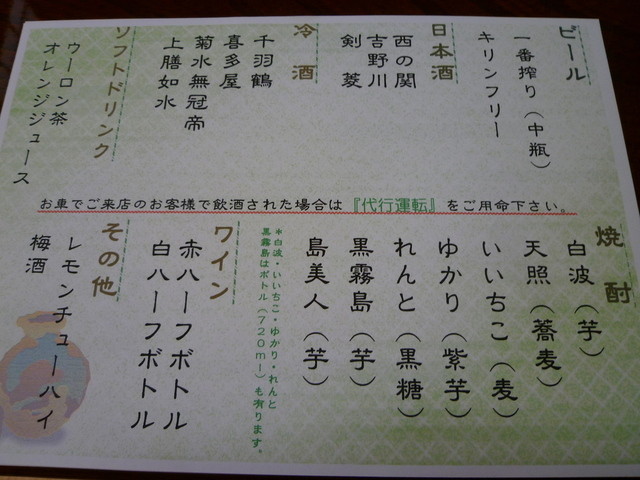 ビール
一番搾り（中瓶）
キリンフリー
日本酒
西の関
吉野川
剣菱
冷酒
千羽鶴
喜多屋
菊水無冠帝
上膳如水
ソフトドリンク
ウーロン茶
オレンジジュース
お車でご来店のお客様で飲酒された場合は『代行運転』をご用命下さい。
焼酎
白波（芋）
天照（蕎麦）
いいちこ（麦）
ゆかり（紫芋）
れんと（黒糖）
黒霧島（芋）
島美人（芋）
*白波・いいちこ・ゆかり・れんと
黒霧島はボトル（720ml）も有ります。
ワイン
赤ハーフボトル
白ハーフボトル
その他
レモンチューハイ
梅酒